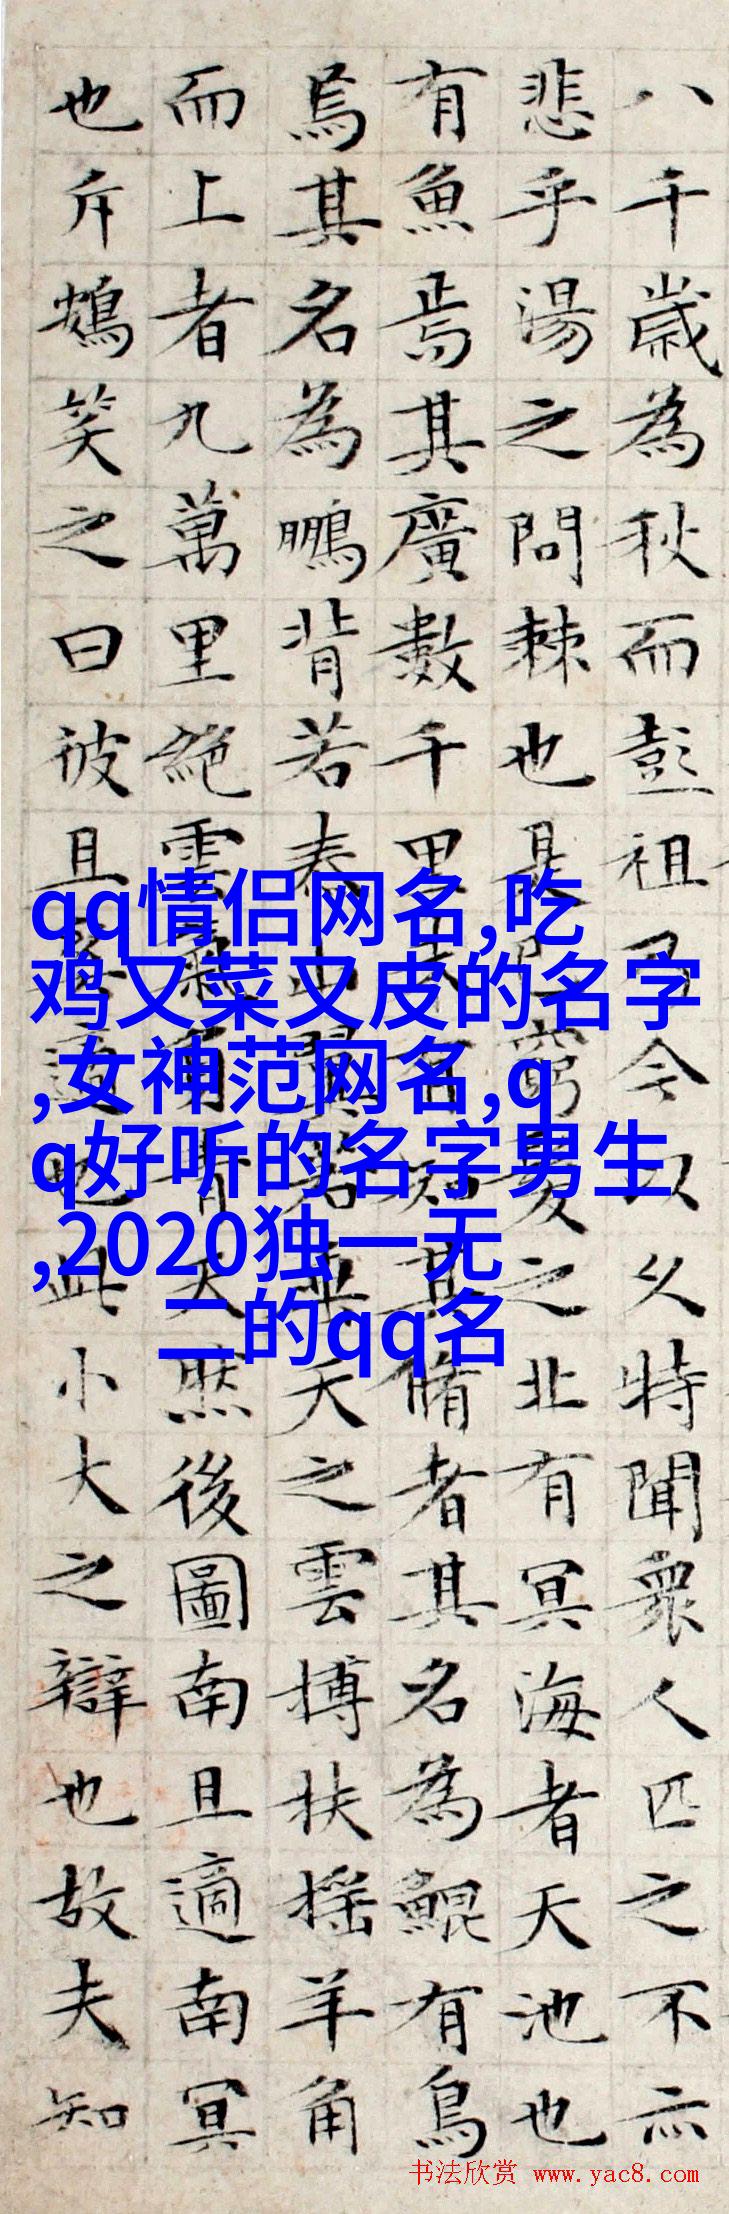 八千歲為秋而彭祖乃今以久特聞衆人匹之不亦
悲乎湯之問棘也是已窮髮之北有冥海者天池也
有魚焉其廣數千里未有知其脩者其名為鯤有鳥
焉其名為鵬背若泰山翼若垂天之雲搏扶摇羊角
而上者九萬里絕雲氣負青天然後圖南且適南冥
也斥鴳笑之曰彼且奚適也此小大之辯也故夫知
qq情侣网名,吃
鸡又菜又皮的名字
,女神范网名,q
q好听的名字男生
,2020独一无
二的qq名
书法欣赏 www.yac8.com